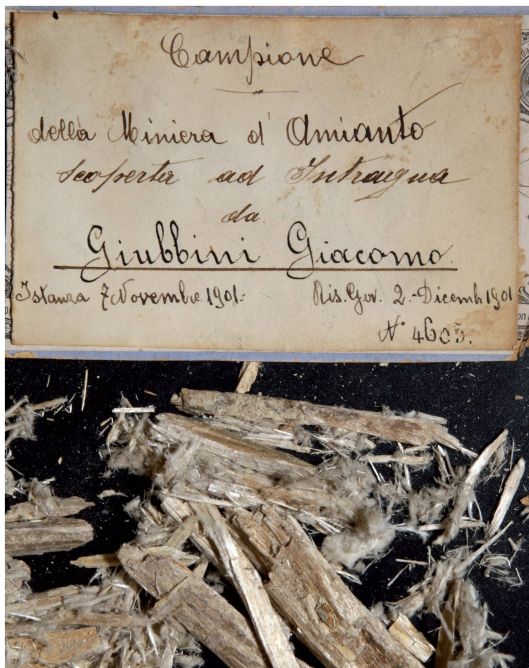 Campione
della Miniera d' Amianto
scoperta ad Intragna
da
Giubbini Giacomo.
Istanza 7 Novembre 1901.
Ris. Gov. 2. Dicemb 1901
N° 4605.